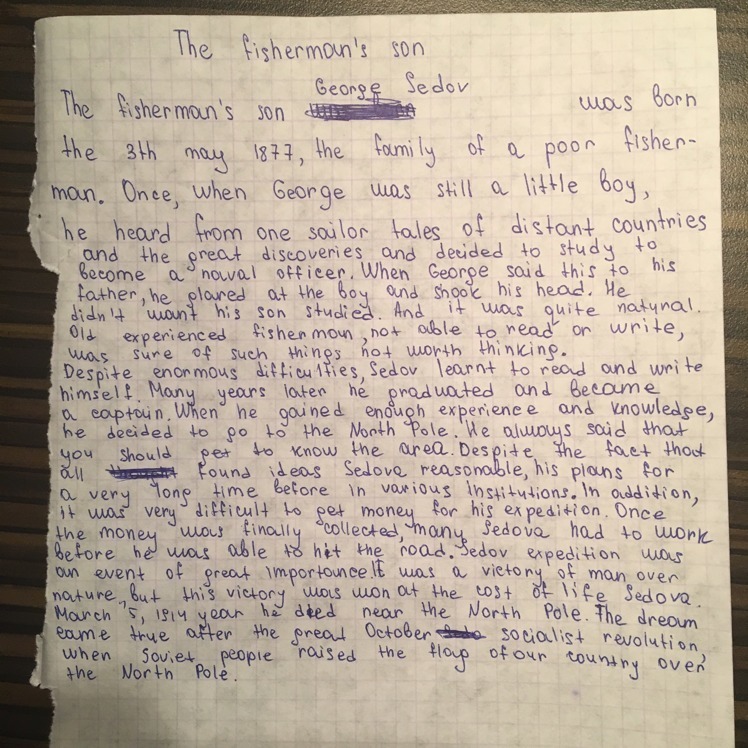 The fisherman's son
George Sedov
The fisherman's son was born
the 3th may 1877, the family of a poor fisher-
man. Once, when George was still a little boy,
he heard from one sailor tales of distant countries
and the great discoveries and decided to study to
become a naval officer. When George said this to his
father, he glared at the boy and shook his head. He
didn't want his son studied. And it was quite natyral.
Old experienced fisherman, not able to read or write,
was sure of such things not worth thinking.
Despite enormous difficulties, Sedov learnt to read and write
himself. Many years later he graduated and became
a captain. When he gained enough experience and knowledge,
he decided to go to the North Pole. He always said that
you should get to know the area. Despite the fact that
all found ideas Sedova reasonable, his plans for
a very long time before in various institutions. In addition,
it was very difficult to get money for his expedition. Once
the money was finally collected, many Sedova had to work
before he was able to hit the road. Sedov expedition was
an event of great importance. It was a victory of man over
nature, but this victory was won at the cost of life Sedova.
March 5, 1914 year he died near the North Pole. The dream
came true after the great October socialist revolution,
when Soviet people raised the flag of our country over
the North Pole.